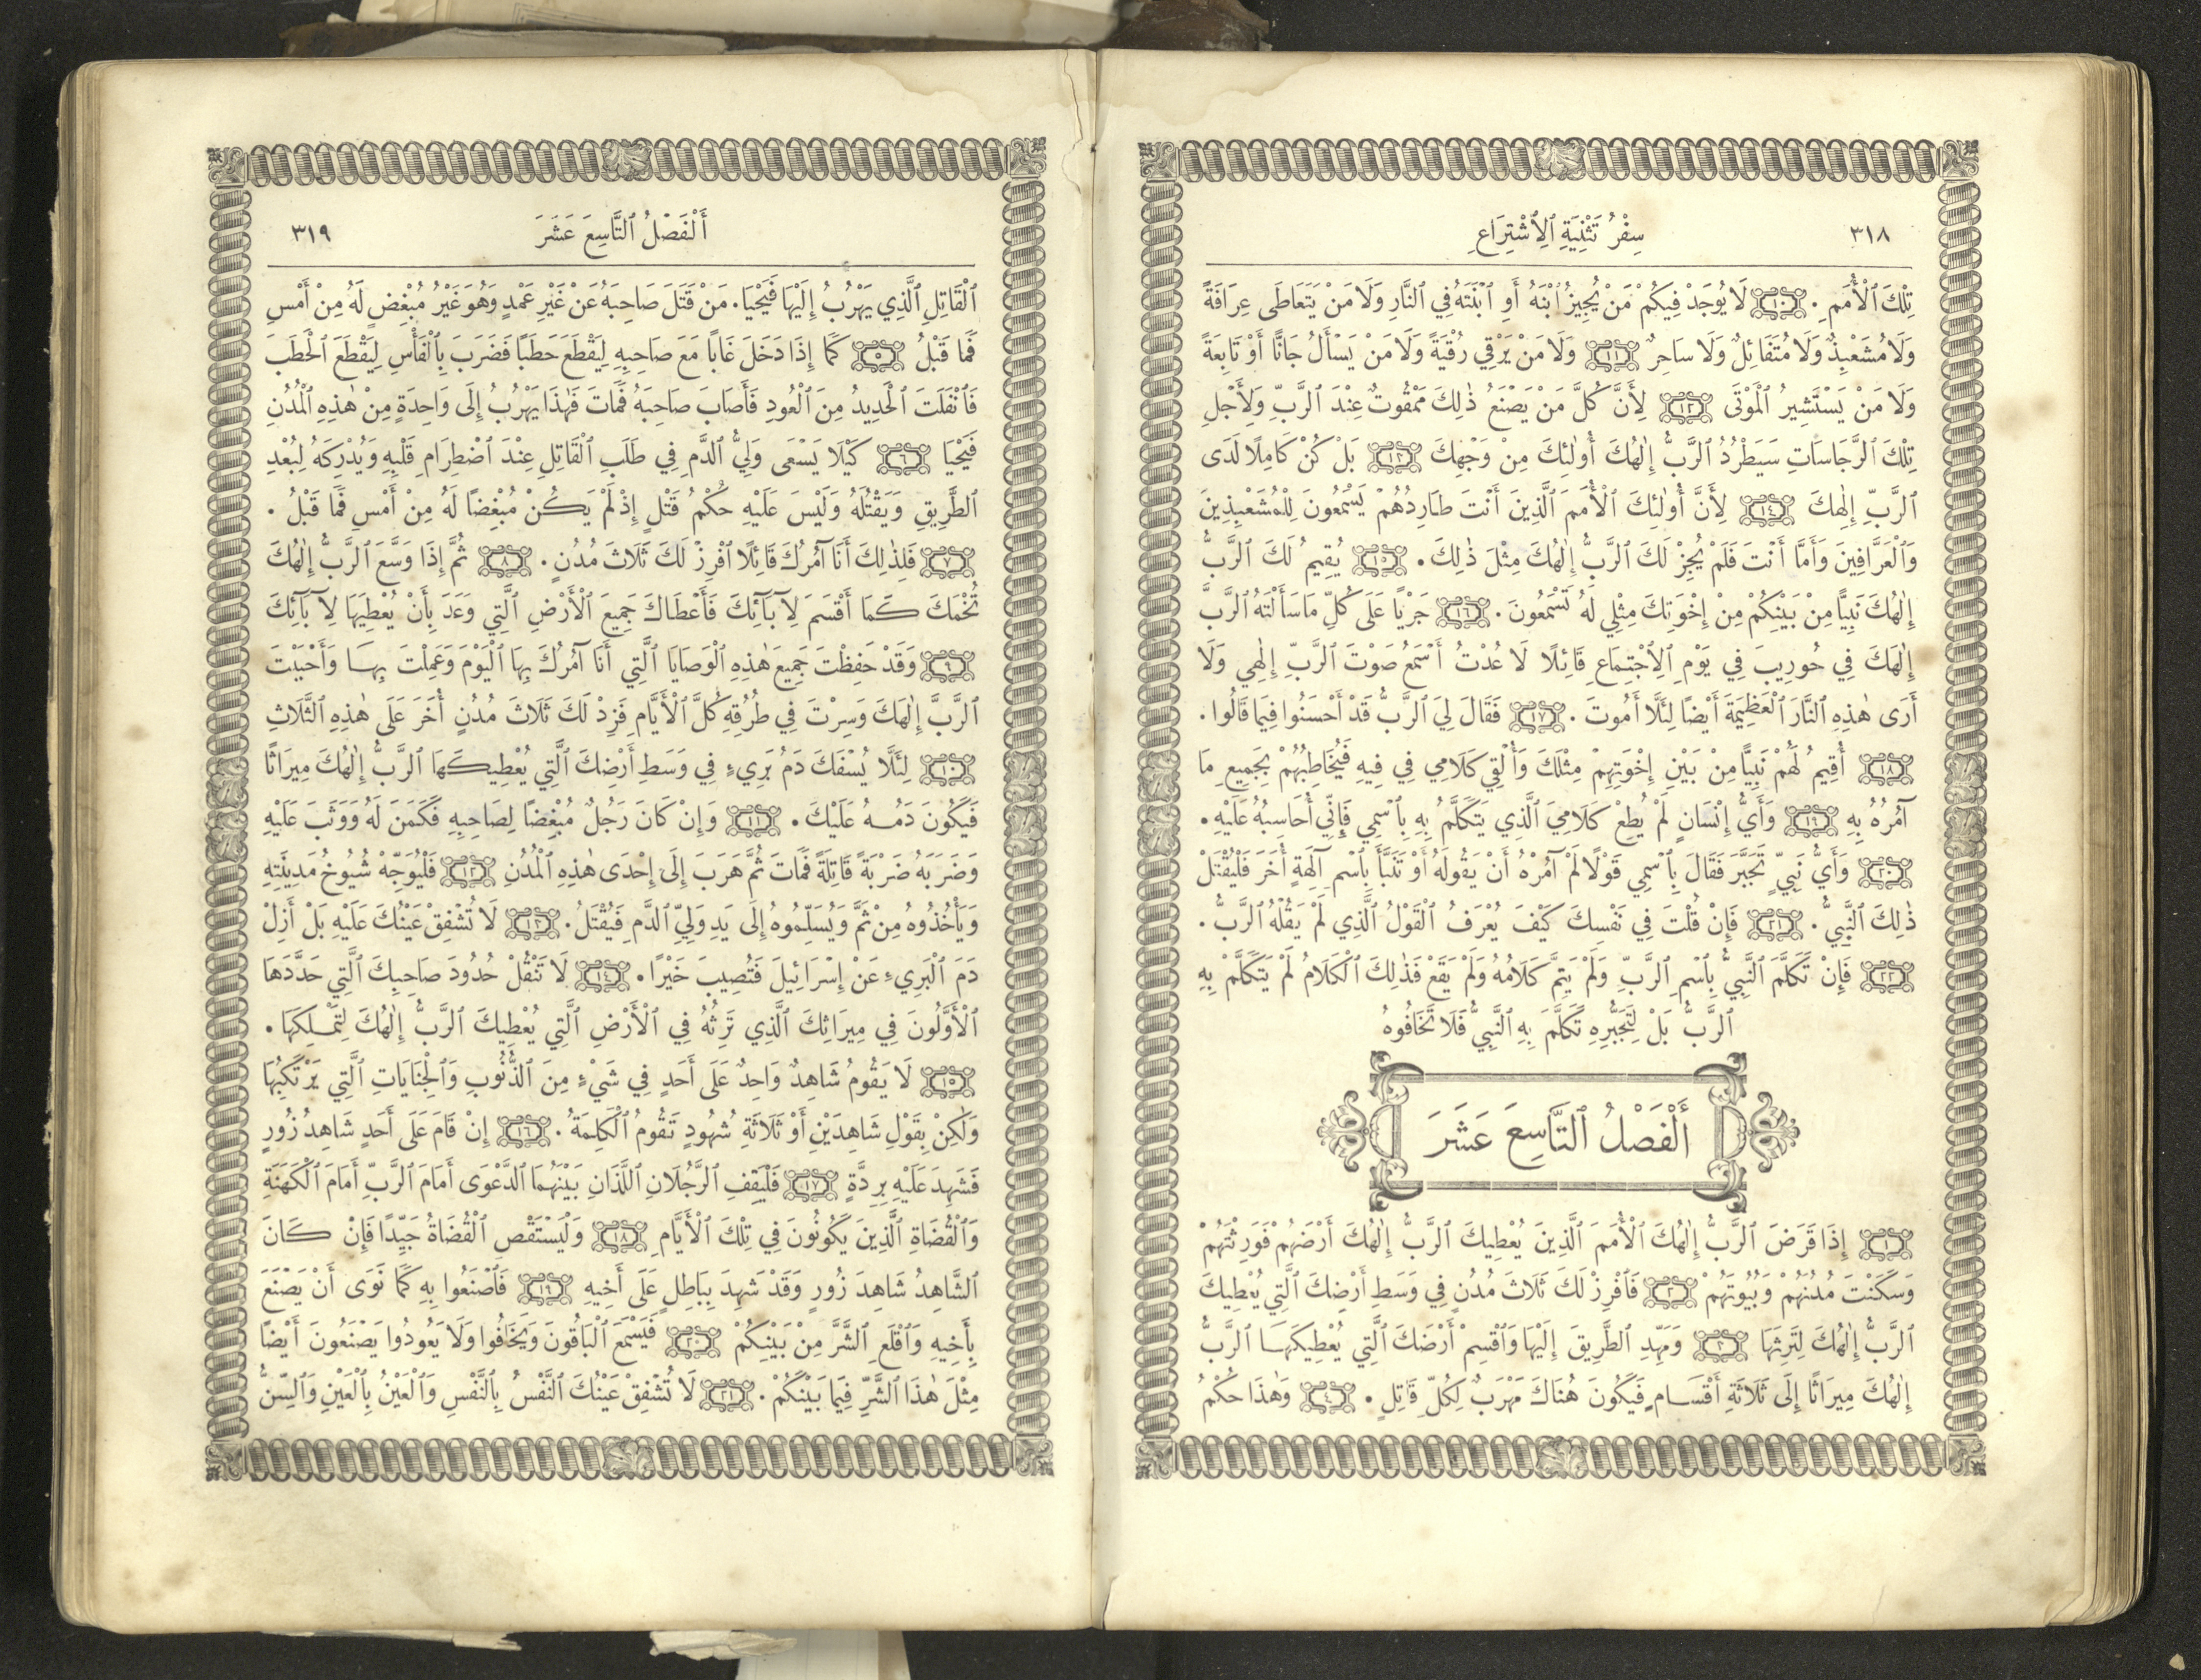 ٣١٨ سِفْرُ تَثْنِيَةِ ٱلِٱشْتِرَاعِ
تِلْكَ ٱلْأُمَمِ . ١٠ لَا يُوجَدْ فِيكُمْ مَنْ يُجِيزُ ٱبْنَهُ أَوِ ٱبْنَتَهُ فِي ٱلنَّارِ وَلَا مَنْ يَتَعَاطَى عِرَافَةً
وَلَا مُشَعْبِذٌ وَلَا مُتَفَائِلٌ وَلَا سَاحِرٌ ١١ وَلَا مَنْ يَرْقِي رُقْيَةً وَلَا مَنْ يَسْأَلُ جَانًّا أَوْ تَابِعَةً
وَلَا مَنْ يَسْتَشِيرُ ٱلْمَوْتَى ١٢ لِأَنَّ كُلَّ مَنْ يَصْنَعُ ذٰلِكَ مَمْقُوتٌ عِنْدَ ٱلرَّبِّ وَلِأَجْلِ
تِلْكَ ٱلرَّجَاسَاتِ سَيَطْرُدُ ٱلرَّبُّ إِلٰهُكَ أُولٰئِكَ مِنْ وَجْهِكَ ١٣ بَلْ كُنْ كَامِلًا لَدَى
ٱلرَّبِّ إِلٰهِكَ ١٤ لِأَنَّ أُولٰئِكَ ٱلْأُمَمَ ٱلَّذِينَ أَنْتَ طَارِدُهُمْ يَسْمَعُونَ لِلْمُشَعْبِذِينَ
وَٱلْعَرَّافِينَ وَأَمَّا أَنْتَ فَلَمْ يُجِزْ لَكَ ٱلرَّبُّ إِلٰهُكَ مِثْلَ ذٰلِكَ . ١٥ يُقِيمُ لَكَ ٱلرَّبُّ
إِلٰهُكَ نَبِيًّا مِنْ بَيْنِكُمْ مِنْ إِخْوَتِكَ مِثْلِي لَهُ تَسْمَعُونَ . ١٦ جَرْيًا عَلَى كُلِّ مَا سَأَلْتَهُ ٱلرَّبَّ
إِلٰهَكَ فِي حُورِيبَ فِي يَوْمِ ٱلِٱجْتِمَاعِ قَائِلًا لَا عُدْتُ أَسْمَعُ صَوْتَ ٱلرَّبِّ إِلٰهِي وَلَا
أَرَى هٰذِهِ ٱلنَّارَ ٱلْعَظِيمَةَ أَيْضًا لِئَلَّا أَمُوتَ . ١٧ فَقَالَ لِيَ ٱلرَّبُّ قَدْ أَحْسَنُوا فِيمَا قَالُوا .
١٨ أُقِيمُ لَهُمْ نَبِيًّا مِنْ بَيْنِ إِخْوَتِهِمْ مِثْلَكَ وَأُلْقِي كَلَامِي فِي فِيهِ فَيُخَاطِبُهُمْ بِجَمِيعِ مَا
آمُرُهُ بِهِ ١٩ وَأَيُّ إِنْسَانٍ لَمْ يُطِعْ كَلَامِيَ ٱلَّذِي يَتَكَلَّمُ بِهِ بِٱسْمِي فَإِنِّي أُحَاسِبُهُ عَلَيْهِ .
٢٠ وَأَيُّ نَبِيٍّ تَجَبَّرَ فَقَالَ بِٱسْمِي قَوْلًا لَمْ آمُرْهُ أَنْ يَقُولَهُ أَوْ تَنَبَّأَ بِٱسْمِ آلِهَةٍ أُخَرَ فَلْيُقْتَلْ
ذٰلِكَ ٱلنَّبِيُّ . ٢١ فَإِنْ قُلْتَ فِي نَفْسِكَ كَيْفَ يُعْرَفُ ٱلْقَوْلُ ٱلَّذِي لَمْ يَقُلْهُ ٱلرَّبُّ .
٢٢ فَإِنْ تَكَلَّمَ ٱلنَّبِيُّ بِٱسْمِ ٱلرَّبِّ وَلَمْ يَتِمَّ كَلَامُهُ وَلَمْ يَقَعْ فَذٰلِكَ ٱلْكَلَامُ لَمْ يَتَكَلَّمْ بِهِ
ٱلرَّبُّ بَلْ لِتَجَبُّرِهِ تَكَلَّمَ بِهِ ٱلنَّبِيُّ فَلَا تَخَافُوهُ
أَلْفَصْلُ ٱلتَّاسِعَ عَشَرَ
١ إِذَا قَرَضَ ٱلرَّبُّ إِلٰهُكَ ٱلْأُمَمَ ٱلَّذِينَ يُعْطِيكَ ٱلرَّبُّ إِلٰهُكَ أَرْضَهُمْ فَوَرِثْتَهُمْ
وَسَكَنْتَ مُدُنَهُمْ وَبُيُوتَهُمْ ٢ فَٱفْرِزْ لَكَ ثَلَاثَ مُدُنٍ فِي وَسَطِ أَرْضِكَ ٱلَّتِي يُعْطِيكَ
ٱلرَّبُّ إِلٰهُكَ لِتَرِثَهَا ٣ وَمَهِّدِ ٱلطَّرِيقَ إِلَيْهَا وَٱقْسِمْ أَرْضَكَ ٱلَّتِي يُعْطِيكَهَا ٱلرَّبُّ
إِلٰهُكَ مِيرَاثًا إِلَى ثَلَاثَةِ أَقْسَامٍ فَيَكُونَ هُنَاكَ مَهْرَبٌ لِكُلِّ قَاتِلٍ . ٤ وَهٰذَا حُكْمُ
أَلْفَصْلُ ٱلتَّاسِعَ عَشَرَ ٣١٩
ٱلْقَاتِلِ ٱلَّذِي يَهْرُبُ إِلَيْهَا فَيَحْيَا . مَنْ قَتَلَ صَاحِبَهُ عَنْ غَيْرِ عَمْدٍ وَهُوَ غَيْرُ مُبْغِضٍ لَهُ مِنْ أَمْسِ
فَمَا قَبْلُ ٥ كَمَا إِذَا دَخَلَ غَابًا مَعَ صَاحِبِهِ لِيَقْطَعَ حَطَبًا فَضَرَبَ بِٱلْفَأْسِ لِيَقْطَعَ ٱلْحَطَبَ
فَٱنْفَلَتَ ٱلْحَدِيدُ مِنَ ٱلْعُودِ فَأَصَابَ صَاحِبَهُ فَمَاتَ فَهٰذَا يَهْرُبُ إِلَى وَاحِدَةٍ مِنْ هٰذِهِ ٱلْمُدُنِ
فَيَحْيَا ٦ كَيْلَا يَسْعَى وَلِيُّ ٱلدَّمِ فِي طَلَبِ ٱلْقَاتِلِ عِنْدَ ٱضْطِرَامِ قَلْبِهِ وَيُدْرِكَهُ لِبُعْدِ
ٱلطَّرِيقِ وَيَقْتُلَهُ وَلَيْسَ عَلَيْهِ حُكْمُ قَتْلٍ إِذْ لَمْ يَكُنْ مُبْغِضًا لَهُ مِنْ أَمْسِ فَمَا قَبْلُ .
٧ فَلِذٰلِكَ أَنَا آمُرُكَ قَائِلًا ٱفْرِزْ لَكَ ثَلَاثَ مُدُنٍ . ٨ ثُمَّ إِذَا وَسَّعَ ٱلرَّبُّ إِلٰهُكَ
تُخْمَكَ كَمَا أَقْسَمَ لِآبَآئِكَ فَأَعْطَاكَ جَمِيعَ ٱلْأَرْضِ ٱلَّتِي وَعَدَ بِأَنْ يُعْطِيَهَا لِآبَآئِكَ
٩ وَقَدْ حَفِظْتَ جَمِيعَ هٰذِهِ ٱلْوَصَايَا ٱلَّتِي أَنَا آمُرُكَ بِهَا ٱلْيَوْمَ وَعَمِلْتَ بِهَا وَأَحْبَبْتَ
ٱلرَّبَّ إِلٰهَكَ وَسِرْتَ فِي طُرُقِهِ كُلَّ ٱلْأَيَّامِ فَزِدْ لَكَ ثَلَاثَ مُدُنٍ أُخَرَ عَلَى هٰذِهِ ٱلثَّلَاثِ
١٠ لِئَلَّا يُسْفَكَ دَمُ بَرِيءٍ فِي وَسَطِ أَرْضِكَ ٱلَّتِي يُعْطِيكَهَا ٱلرَّبُّ إِلٰهُكَ مِيرَاثًا
فَيَكُونَ دَمُهُ عَلَيْكَ . ١١ وَإِنْ كَانَ رَجُلٌ مُبْغِضًا لِصَاحِبِهِ فَكَمَنَ لَهُ وَوَثَبَ عَلَيْهِ
وَضَرَبَهُ ضَرْبَةً قَاتِلَةً فَمَاتَ ثُمَّ هَرَبَ إِلَى إِحْدَى هٰذِهِ ٱلْمُدُنِ ١٢ فَلْيُوَجِّهْ شُيُوخُ مَدِينَتِهِ
وَيَأْخُذُوهُ مِنْ ثَمَّ وَيُسَلِّمُوهُ إِلَى يَدِ وَلِيِّ ٱلدَّمِ فَيُقْتَلُ . ١٣ لَا تُشْفِقْ عَيْنُكَ عَلَيْهِ بَلْ أَزِلْ
دَمَ ٱلْبَرِيءِ عَنْ إِسْرَائِيلَ فَتُصِيبَ خَيْرًا . ١٤ لَا تَنْقُلْ حُدُودَ صَاحِبِكَ ٱلَّتِي حَدَّدَهَا
ٱلْأَوَّلُونَ فِي مِيرَاثِكَ ٱلَّذِي تَرِثُهُ فِي ٱلْأَرْضِ ٱلَّتِي يُعْطِيكَ ٱلرَّبُّ إِلٰهُكَ لِتَمْلِكَهَا .
١٥ لَا يَقُومُ شَاهِدٌ وَاحِدٌ عَلَى أَحَدٍ فِي شَيْءٍ مِنَ ٱلذُّنُوبِ وَٱلْجِنَايَاتِ ٱلَّتِي يَرْتَكِبُهَا
وَلٰكِنْ بِقَوْلِ شَاهِدَيْنِ أَوْ ثَلَاثَةِ شُهُودٍ تَقُومُ ٱلْكَلِمَةُ . ١٦ إِنْ قَامَ عَلَى أَحَدٍ شَاهِدُ زُورٍ
فَشَهِدَ عَلَيْهِ بِرِدَّةٍ ١٧ فَلْيَقِفِ ٱلرَّجُلَانِ ٱللَّذَانِ بَيْنَهُمَا ٱلدَّعْوَى أَمَامَ ٱلرَّبِّ أَمَامَ ٱلْكَهَنَةِ
وَٱلْقُضَاةِ ٱلَّذِينَ يَكُونُونَ فِي تِلْكَ ٱلْأَيَّامِ ١٨ وَلْيَسْتَقْصِ ٱلْقُضَاةُ جَيِّدًا فَإِنْ كَانَ
ٱلشَّاهِدُ شَاهِدَ زُورٍ وَقَدْ شَهِدَ بِبَاطِلٍ عَلَى أَخِيهِ ١٩ فَٱصْنَعُوا بِهِ كَمَا نَوَى أَنْ يَصْنَعَ
بِأَخِيهِ وَٱقْلَعِ ٱلشَّرَّ مِنْ بَيْنِكُمْ ٢٠ فَيَسْمَعَ ٱلْبَاقُونَ وَيَخَافُوا وَلَا يَعُودُوا يَصْنَعُونَ أَيْضًا
مِثْلَ هٰذَا ٱلشَّرِّ فِيمَا بَيْنَكُمْ . ٢١ لَا تُشْفِقْ عَيْنُكَ ٱلنَّفْسُ بِٱلنَّفْسِ وَٱلْعَيْنُ بِٱلْعَيْنِ وَٱلسِّنُّ